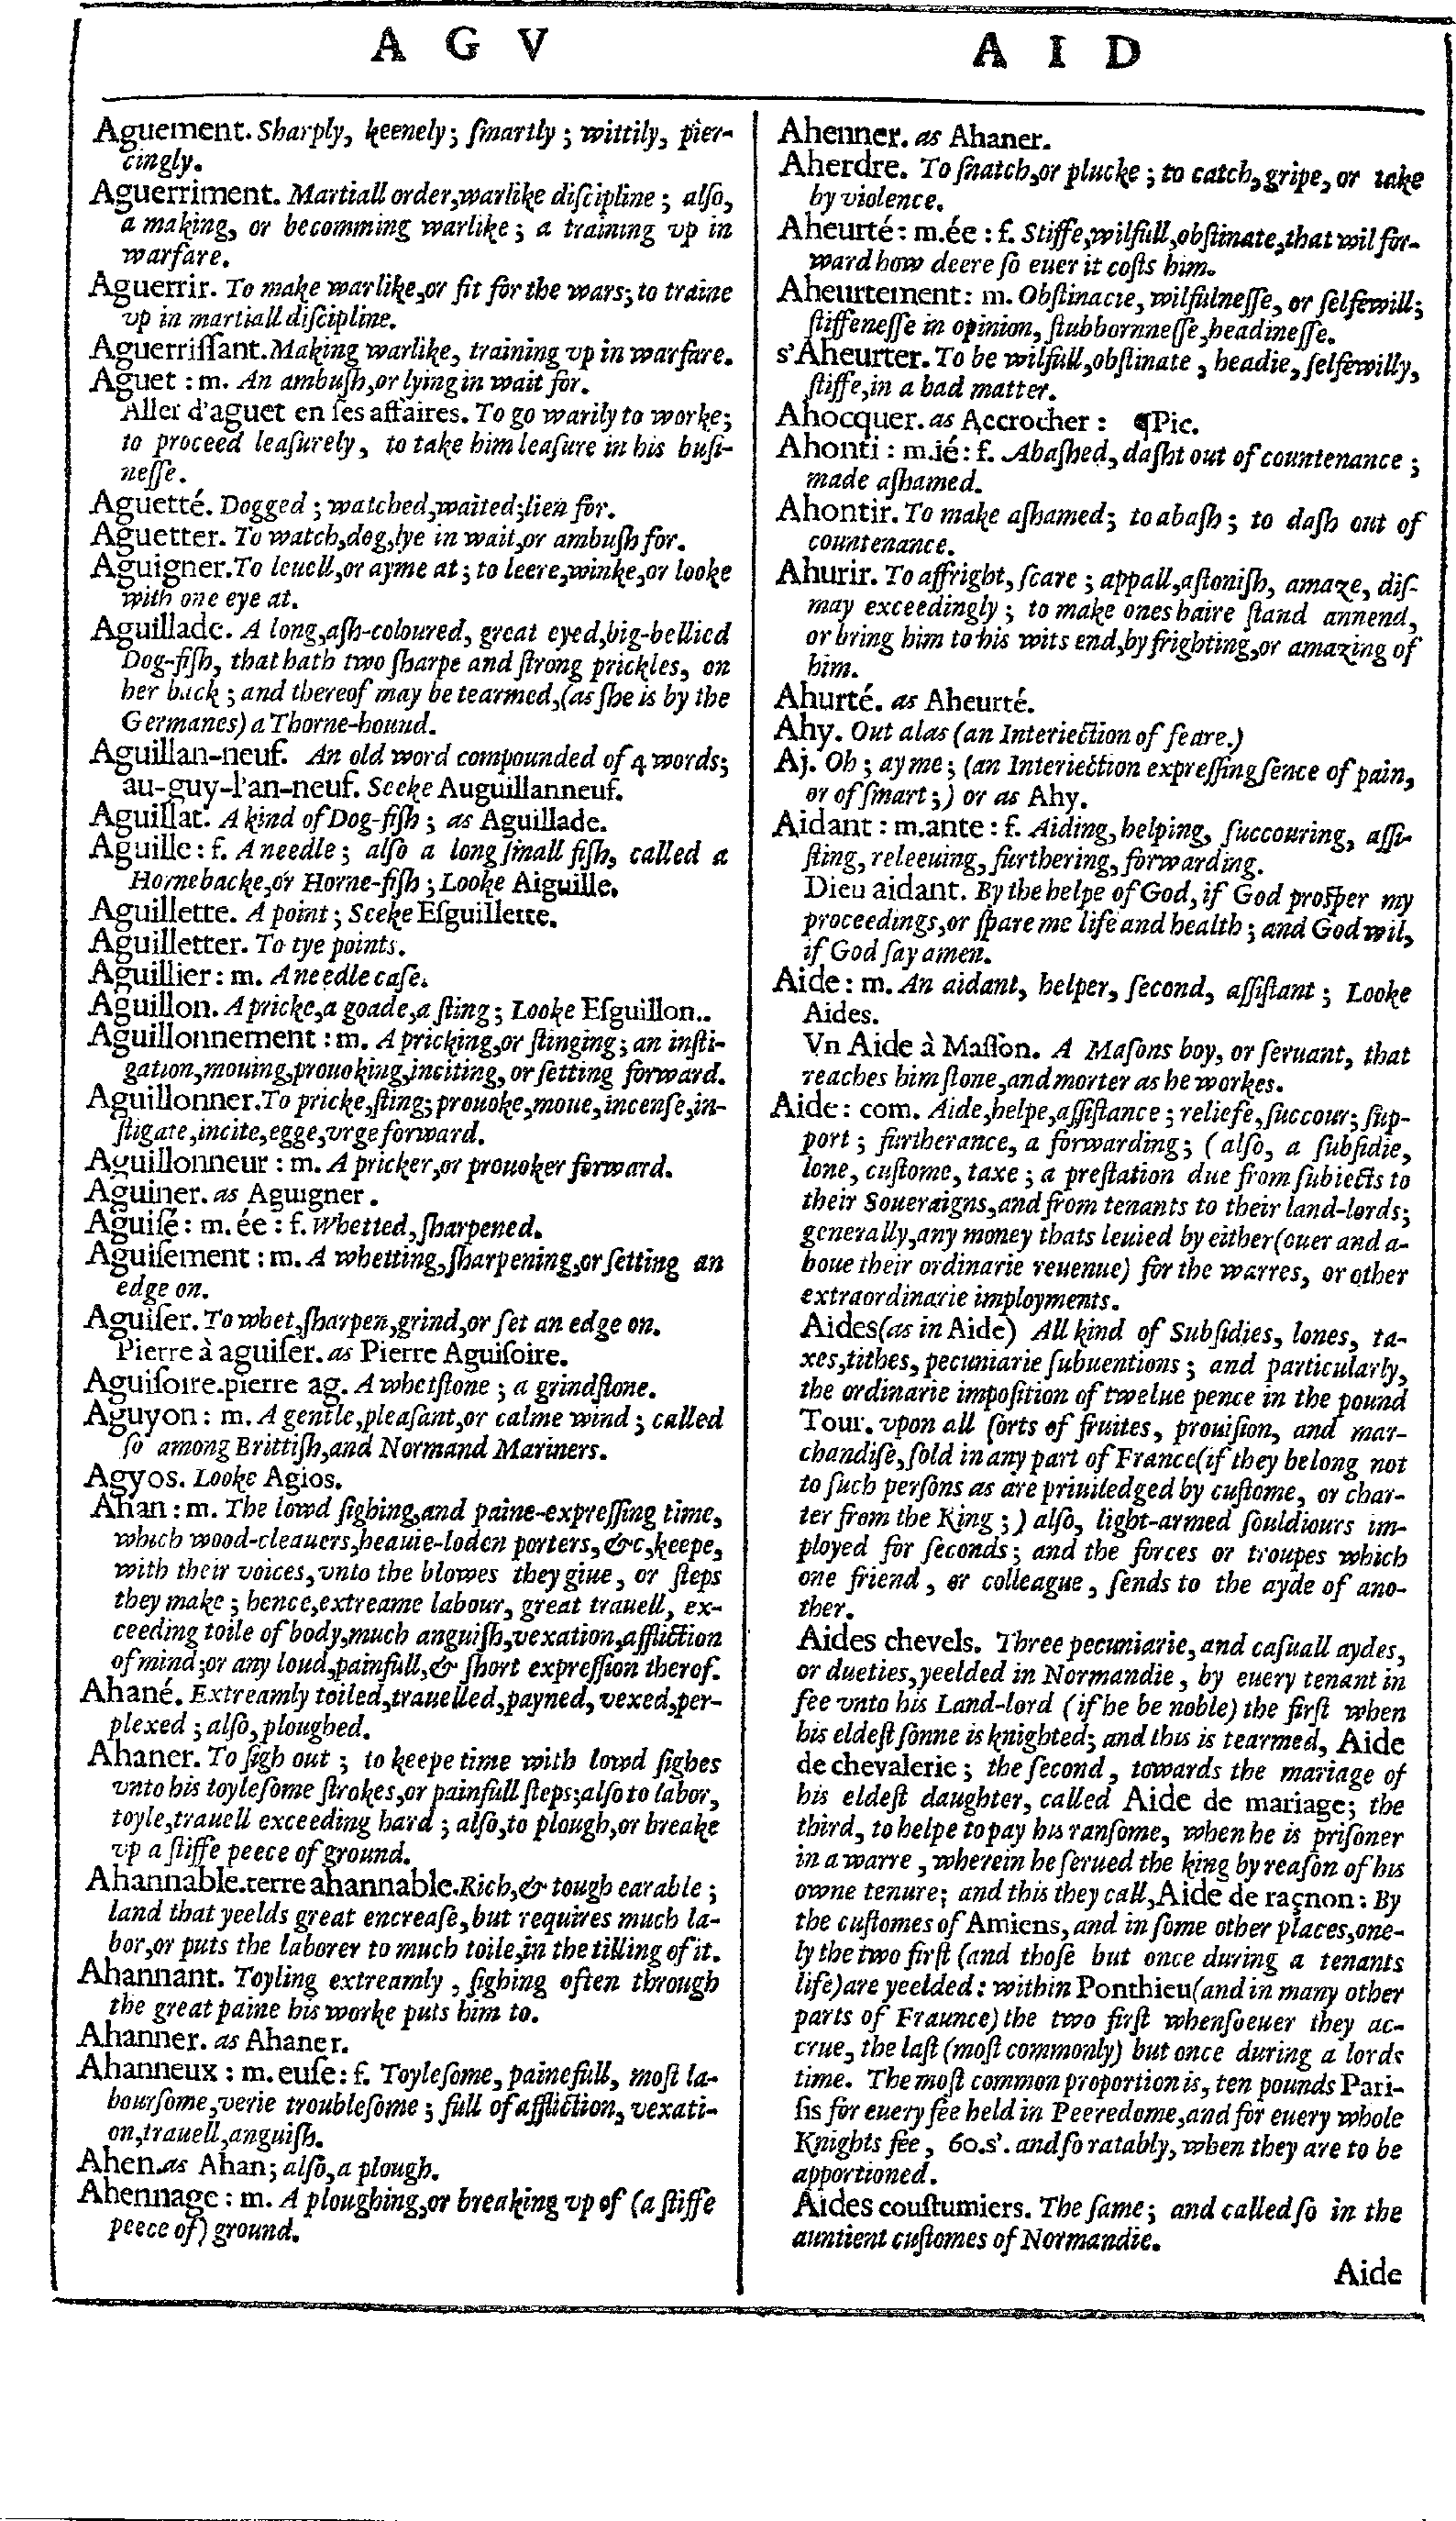 A G V
Aguement. Sharply, keenely; ſmartly; wittily, pier-
cingly.
Aguerriment. Martiall order,warlike diſcipline; alſo,
a making, or becomming warlike; a training vp in
warfare.
Aguerrir. To make warlike,or fit for the wars; to traine
vp in martiall diſcipline.
Aguerriſſant. Making warlike, training vp in warfare.
Aguet : m. An ambuſh,or lying in wait for.
Aller d'aguet en ſes affaires. To go warily to worke;
to proceed leaſurely, to take him leaſure in his buſi-
neſſe.
Aguetté. Dogged ; watched,waited;lien for.
Aguetter. To watch,dog,lye in wait,or ambuſh for.
Aguigner. To leuell,or ayme at; to leere,winke,or looke
with one eye at.
Aguillade. A long,aſh-coloured, great eyed,big-bellied
Dog-fiſh, that hath two ſharpe and ſtrong prickles, on
her back ; and thereof may be tearmed,(as ſhe is by the
Germanes) a Thorne-hound.
Aguillan-neuf. An old word compounded of 4 words;
au-guy-l'an-neuf. Seeke Auguillanneuf.
Aguillat. A kind of Dog-fiſh ; as Aguillade.
Aguille : f. A needle ; alſo a long ſmall fiſh, called a
Hornebacke,or Horne-fiſh ; Looke Aiguille.
Aguillette. A point ; Seeke Eſguillette.
Aguilletter. To tye points.
Aguillier : m. A needle caſe.
Aguillon. A pricke,a goade,a ſting; Looke Eſguillon..
Aguillonnement : m. A pricking,or ſtinging; an inſti-
gation,mouing,prouoking,inciting, or ſetting forward.
Aguillonner. To pricke,ſting; prouoke,moue,incenſe,in-
ſtigate,incite,egge,vrge forward.
Aguillonneur : m. A pricker,or prouoker forward.
Aguiner. as Aguigner.
Aguiſé : m. ée : f. Whetted,ſharpened.
Aguiſement : m. A whetting,ſharpening,or ſetting an
edge on.
Aguiſer. To whet,ſharpen,grind,or ſet an edge on.
Pierre à aguiſer. as Pierre Aguiſoire.
Aguiſoire. pierre ag. A whetſtone ; a grindſtone.
Aguyon : m. A gentle,pleaſant,or calme wind ; called
ſo among Brittiſh,and Normand Mariners.
Agyos. Looke Agios.
Ahan : m. The lowd ſighing,and paine-expreſſing time,
which wood-cleauers,heauie-loden porters,&c,keepe,
with their voices,vnto the blowes they giue, or ſteps
they make ; hence,extreame labour, great trauell, ex-
ceeding toile of body,much anguiſh,vexation,affliction
of mind;or any loud,painfull,& ſhort expreſſion therof.
Ahané. Extreamly toiled,trauelled,payned, vexed,per-
plexed ; alſo,ploughed.
Ahaner. To ſigh out ; to keepe time with lowd ſighes
vnto his toyleſome ſtrokes,or painfull ſteps;alſo to labor,
toyle,trauell exceeding hard ; alſo,to plough,or breake
vp a ſtiffe peece of ground.
Ahannable. terre ahannable. Rich,& tough earable ;
land that yeelds great encreaſe,but requires much la-
bor,or puts the laborer to much toile,in the tilling of it.
Ahannant. Toyling extreamly , ſighing often through
the great paine his worke puts him to.
Ahanner. as Ahaner.
Ahanneux : m. euſe : f. Toyleſome, painefull, moſt la-
bourſome,verie troubleſome ; full of affliction, vexati-
on,trauell,anguiſh.
Ahen. as Ahan; alſo,a plough.
Ahennage : m. A ploughing,or breaking vp of (a ſtiffe
peece of) ground.
A I D
Ahenner. as Ahaner.
Aherdre. To ſnatch,or plucke ; to catch,gripe, or take
by violence.
Aheurté : m.ée : f. Stiffe,wilfull,obſtinate,that wil for-
ward how deere ſo euer it coſts him.
Aheurtement : m. Obſtinacie, wilfulneſſe, or ſelfewill;
ſtiffeneſſe in opinion, ſtubbornneſſe,headineſſe.
s'Aheurter. To be wilfull,obſtinate , headie, ſelfewilly,
ſtiffe,in a bad matter.
Ahocquer. as Accrocher : ¶Pic.
Ahonti : m.ié : f. Abaſhed, daſht out of countenance ;
made aſhamed.
Ahontir. To make aſhamed; to abaſh ; to daſh out of
countenance.
Ahurir. To affright, ſcare ; appall,aſtoniſh, amaze, diſ-
may exceedingly ; to make ones haire ſtand annend,
or bring him to his wits end,by frighting,or amazing of
him.
Ahurté. as Aheurté.
Ahy. Out alas (an Interiection of feare.)
Aj. Oh ; ay me ; (an Interiection expreſſing ſence of pain,
or of ſmart ;) or as Ahy.
Aidant : m.ante : f. Aiding, helping, ſuccouring, aſſi-
ſting, releeuing, furthering, forwarding.
Dieu aidant. By the helpe of God, if God proſper my
proceedings,or ſpare me life and health ; and God wil,
if God ſay amen.
Aide : m. An aidant, helper, ſecond, aſſiſtant ; Looke
Aides.
Vn Aide à Maſſon. A Maſons boy, or ſeruant, that
reaches him ſtone,and morter as he workes.
Aide : com. Aide,helpe,aſſiſtance ; reliefe, ſuccour; ſup-
port ; furtherance, a forwarding; ( alſo, a ſubſidie,
lone, cuſtome, taxe ; a preſtation due from ſubiects to
their Soueraigns,and from tenants to their land-lords;
generally,any money thats leuied by either(ouer and a-
boue their ordinarie reuenue) for the warres, or other
extraordinarie imployments.
Aides(as in Aide) All kind of Subſidies, lones, ta-
xes,tithes, pecuniarie ſubuentions ; and particularly,
the ordinarie impoſition of twelue pence in the pound
Tour. vpon all ſorts of fruites, prouiſion, and mar-
chandiſe,ſold in any part of France(if they belong not
to ſuch perſons as are priuiledged by cuſtome, or char-
ter from the King ;) alſo, light-armed ſouldiours im-
ployed for ſeconds ; and the forces or troupes which
one friend , or colleague , ſends to the ayde of ano-
ther.
Aides chevels. Three pecuniarie, and caſuall aydes,
or dueties,yeelded in Normandie , by euery tenant in
fee vnto his Land-lord (if he be noble) the firſt when
his eldeſt ſonne is knighted; and this is tearmed, Aide
de chevalerie ; the ſecond , towards the mariage of
his eldeſt daughter, called Aide de mariage; the
third, to helpe to pay his ranſome, when he is priſoner
in a warre , wherein he ſerued the king by reaſon of his
owne tenure; and this they call,Aide de raçnon : By
the cuſtomes of Amiens,and in ſome other places,one-
ly the two firſt (and thoſe but once during a tenants
life)are yeelded: within Ponthieu(and in many other
parts of Fraunce)the two firſt whenſoeuer they ac-
crue, the laſt (moſt commonly) but once during a lords
time. The moſt common proportion is, ten pounds Pari-
ſis for euery fee held in Peeredome,and for euery whole
Knights fee , 60.s'. and ſo ratably, when they are to be
apportioned.
Aides couſtumiers. The ſame ; and called ſo in the
auntient cuſtomes of Normandie.
Aide